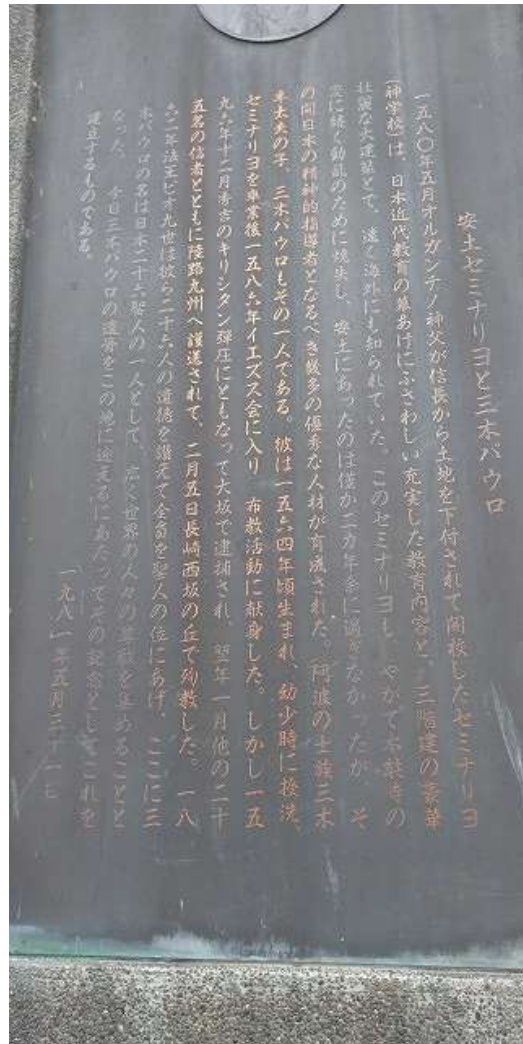 安土セミナリヨと三木パウロ
一五八〇年五月オルガンチノ神父が信長から土地を下付されて開校したセミナリヨ
(神学校)は、日本近代教育の幕あけにふさわしい充実した教育内容と、三階建の豪華
壮麗な大建築とで、遠く海外にも知られていた。このセミナリヨも、やがて本能寺の
変に続く動乱のために焼失し、安土にあったのは僅か二カ年余に過ぎなかったが、そ
の間日本の精神的指導者となるべき幾多の優秀な人材が育成された。阿波の士族三木
半太夫の子、三木パウロもその一人である。彼は一五六四年頃生まれ、幼少時に受洗、
セミナリヨを卒業後一五八六年イエズス会に入り、布教活動に献身した。しかし一五
九六年十二月秀吉のキリシタン弾圧にともなって大坂で逮捕され、翌年一月他の二十
五名の信者とともに陸路九州へ護送されて、二月五日長崎西坂の丘で殉教した。一八
六二年法王ピオ九世は彼ら二十六人の遺徳を讃えて全員を聖人の位にあげ、ここに三
木パウロの名は日本二十六聖人の一人として、広く世界の人々の尊敬を集めることと
なった。今日三木パウロの遺骨をこの地に迎えるにあたってその記念としてこれを
建立するものである。
一九八一年五月三十一日